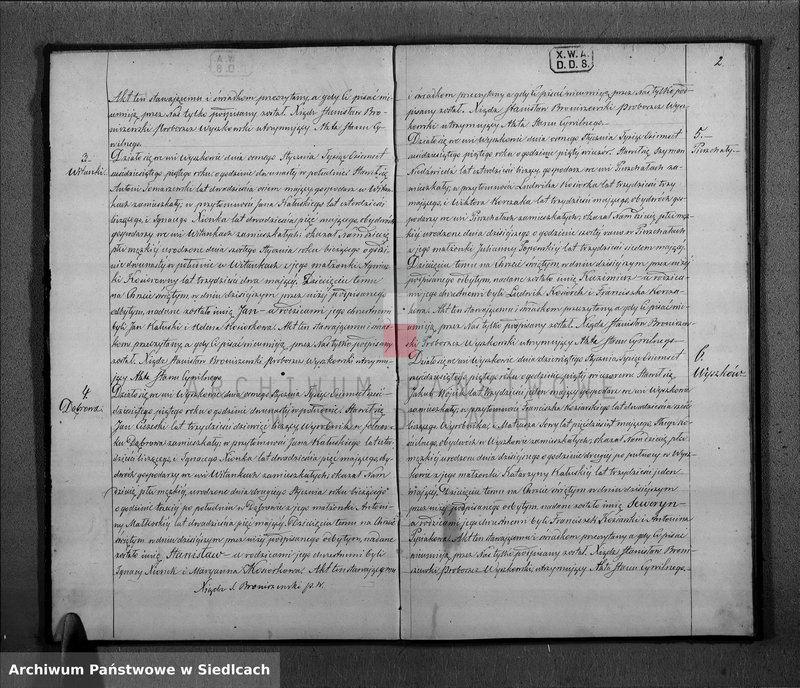 X.W.A.
D.D.S.
2
Akt ten stawającemu i świadkom przeczytany, a gdy Ci pisać nie
umieją przez Nas tylko podpisany został. Xiądz Stanisław Bro-
niszewski Proboszcz Wyszkowski utrzymujący Akta Stanu Cy-
wilnego.
3.
Witanki.
Działo się we wsi Wyszkowie dnia ósmego Stycznia Tysiąc Ośmset
sześćdziesiątego piątego roku o godzinie dwunastej w południe. Stawił się
Antoni Tomaszewski lat dwadzieścia ośm mający gospodarz w Witan-
kach zamieszkały, w przytomności Jana Kaluskiego lat czterdzieści
liczącego, i Ignacego Nionka lat dwadzieścia pięć mającego obydwóch
gospodarzy we wsi Witankach zamieszkałych okazał Nam dziecię
płci męzkiej urodzone dnia szóstego Stycznia roku bieżącego o godzi-
nie dwunastej w południe w Witankach z jego małżonki Agniesz-
ki lat trzydzieści dwa mającej. Dziecięciu temu
na Chrzcie świętym w dniu dzisiejszym przez niżej podpisanego
odbytym, nadane zostało imię Jan a rodzicami jego chrzestnemi
byli Jan Kaluski i Kosiorkowa. Akt ten stawającemu i świad-
kom przeczytany a gdy Ci pisać nie umieją, przez Nas tylko podpisany
został. Xiądz Stanisław Broniszewski Proboszcz Wyszkowski utrzymu-
jący Akta Stanu Cywilnego.
4.
Dąbrowa.
Działo się we wsi Wyszkowie dnia ósmego Stycznia Tysiąc Ośmset sześć-
dziesiątego piątego roku o godzinie dwunastej w południe. Stawił się
Jan lat trzydzieści dziewięć liczący Wyrobnik w folwar-
ku Dąbrowa zamieszkały, w przytomności Jana Kaluskiego lat czter-
dzieści liczącego i Ignacego Nionka lat dwadzieścia pięć mającego oby-
dwóch gospodarzy we wsi Witankach zamieszkałych, okazał Nam
dziecię płci męzkiej urodzone dnia drugiego Stycznia roku bieżącego
o godzinie trzeciej po południu w Dąbrowie z jego małżonki Antoni-
ny lat dwadzieścia pięć mającej. Dziecięciu temu na Chrzcie
świętym w dniu dzisiejszym przez niżej podpisanego odbytym, nadane
zostało imię Stanisław a rodzicami jego chrzestnemi byli
Ignacy Nionek i Maryanna Kosiorkowa. Akt ten stawającemu
Xiądz S. Broniszewski p. w.
i świadkom przeczytany a gdy Ci pisać nie umieją przez Nas tylko pod-
pisany został. Xiądz Stanisław Broniszewski Proboszcz Wysz-
kowski utrzymujący Akta Stanu Cywilnego.
5.
Pierzchały.
Działo się we wsi Wyszkowie dnia ósmego Stycznia Tysiąc Ośmset
sześćdziesiątego piątego roku o godzinie piątej wieczór. Stawił się Szymon
Niedźwiedź lat czterdzieści liczący, gospodarz we wsi Pierzchałach za-
mieszkały, w przytomności Ludwika Kosiorka lat trzydzieści trzy
mającego, i Wiktora Korzaka lat trzydzieści mającego, obydwóch gos-
podarzy we wsi Pierzchałach zamieszkałych, okazał Nam dziecię płci mę-
zkiej urodzone dnia dzisiejszego o godzinie szóstej rano w Pierzchałach
z jego małżonki Julianny lat trzydzieści siedem mającej.
Dziecięciu temu na Chrzcie świętym w dniu dzisiejszym przez niżej
podpisanego odbytym, nadane zostało imię Kazimierz a rodzica-
mi jego chrzestnemi byli Ludwik Kosiorek i Franciszka Korza-
kowa. Akt ten stawającemu i świadkom przeczytany a gdy Ci pisać nie
umieją, przez Nas tylko podpisany został. Xiądz Stanisław Broniszew-
ski Proboszcz Wyszkowski utrzymujący Akta Stanu Cywilnego.
6.
Wyszków.
Działo się we wsi Wyszkowie dnia dziewiątego Stycznia Tysiąc Ośmset
sześćdziesiątego piątego roku o godzinie piątej wieczorem. Stawił się
Jakub Wójcik lat trzydzieści jeden mający gospodarz we wsi Wyszkowie
zamieszkały, w przytomności Franciszka Kozarskiego lat dwadzieścia sześć
liczącego Wyrobnika, i Mateusza lat pięćdziesiąt mającego
obydwóch w Wyszkowie zamieszkałych, okazał Nam dziecię płci
męzkiej urodzone dnia dzisiejszego o godzinie drugiej po północy w Wysz-
kowie z jego małżonki Katarzyny Kaluskiej lat trzydzieści jeden
mającej. Dziecięciu temu na Chrzcie świętym w dniu dzisiejszym
przez niżej podpisanego odbytym nadane zostało imię Seweryn
a rodzicami jego chrzestnemi byli Franciszek i Antonina
Akt ten stawającemu i świadkom przeczytany a gdy Ci pisać
nie umieją, przez Nas tylko podpisany został. Xiądz Stanisław Broni-
szewski Proboszcz Wyszkowski, utrzymujący Akta Stanu Cywilnego.
ARCHIWUM PAŃSTWOWE
W SIEDLCACH
Archiwum Państwowe w Siedlcach